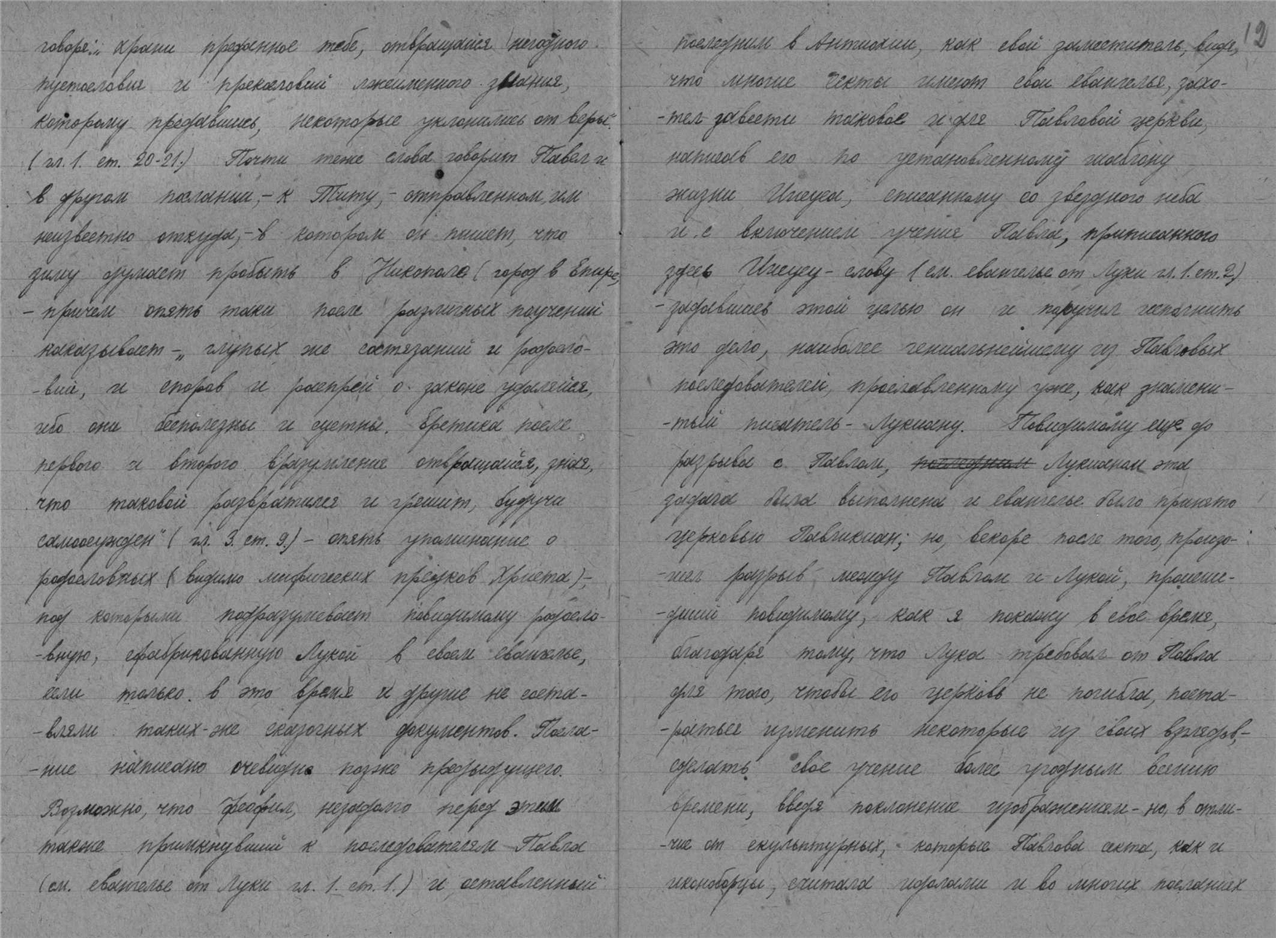 говоря: „Храни преданное тебе, отвращайся негодного
пустословия и прекословий лжеименного знания,
которому предавшись, некоторые уклонились от веры"
(гл. 1. ст. 20-21.) Почти теже слова говорит Павел и
в другом послании,- к Титу,- отправленном, им
неизвестно откуда,- в котором он пишет, что
зиму думает пробыть в Никополе (город в Епире,
- причем опять таки после различных поучений
наказывает - „глупых же состязаний и родосло-
-вий, и споров и распрей о законе удаляйся,
ибо они бесполезны и суетны. Еретика после
первого и второго вразумления отвращайся, зная,
что таковой развратился и грешит, будучи
самоосужден" (гл. 3. ст. 9.) - опять упоминание о
родословных (видимо мифических предков Христа)-
под которыми подразумевает повидимому родосло-
-вную, сфабрикованную Лукой в своем евангелье,
если только в это время и другие не соста-
-вляли таких-же сказочных документов. Посла-
-ние написано очевидно позже предыдущего.
Возможно, что Феофил, незадолго перед этим
также примкнувший к последователям Павла
(см. евангелье от Луки гл. 1. ст. 1.) и оставленный
12
последним в Антиохии, как свой заместитель, видя,
что многие секты имеют свои евангелья, захо-
-тел завести таковое и для Павловой церкви,
написав его по установленному шаблону
жизни Иисуса, списанному со звездного неба
и с включением учения Павла, приписанного
здесь Иисусу - слову (см. евангелье от Луки гл. 1. ст. 2.)
- задавшись этой целью он и поручил исполнить
это дело, наиболее гениальнейшему из Павловых
последователей, прославленному уже, как знамени-
-тый писатель - Лукиану. Повидимому еще до
разрыва с Павлом, последним Лукианом эта
задача была выполнена и евангелье было принято
церковью Павликиан; но, вскоре после того, произо-
-шел разрыв между Павлом и Лукой, происше-
-дший повидимому, как я покажу в свое время,
благодаря тому, что Лука требовал от Павла
для того, чтобы его церковь не погибла, поста-
-раться изменить некоторые из своих взглядов,-
сделать свое учение более угодным веянию
времени, введя поклонение изображением - но, в отли-
-чие от скульптурных, - которые Павлова секта, как и
иконоборцы, считала идолами и во многих посланиях